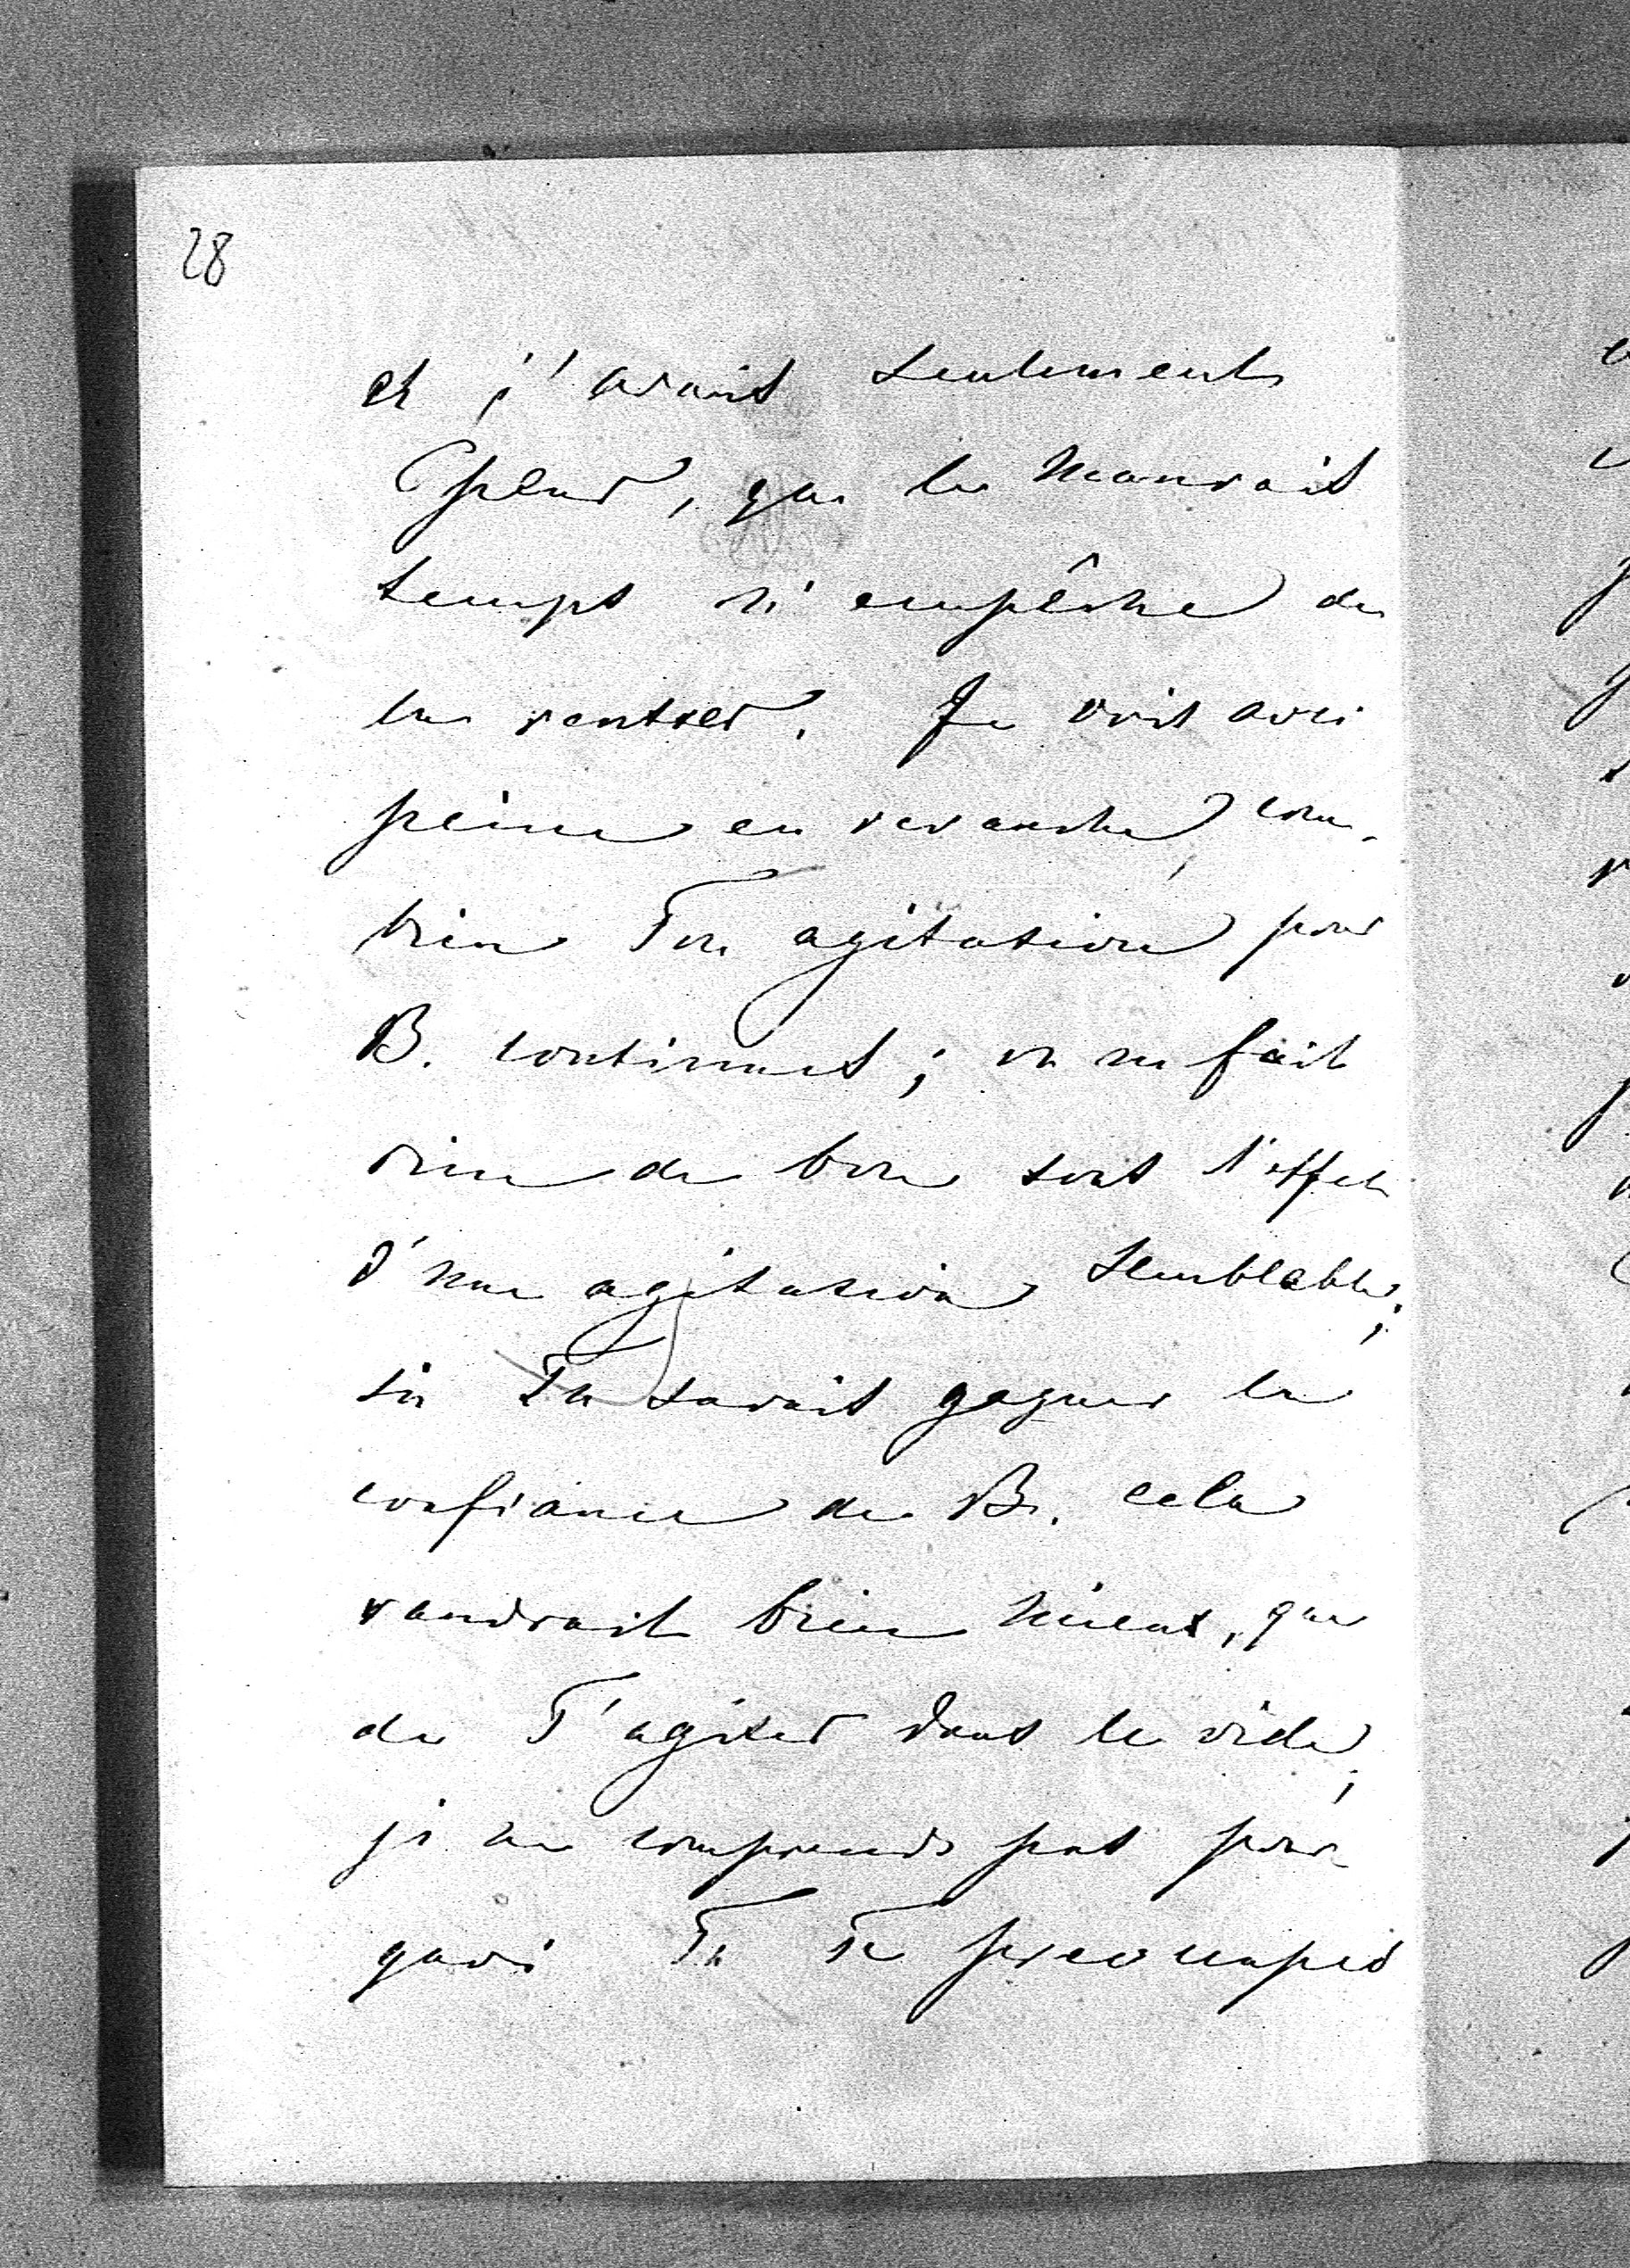 28
et j'avais seulement
peur, que le mauvais
temps n'empêche de
la rentrer. Je vois avec
peine en revanche, com-
bien Ton agitation pour
B. continues; on ne fait
rien de bon sous l'effet
d'une agitation semblable;
si Tu savais gagner la
confiance de B. cela
vaudrait bien mieux, que
de T'agiter dans le vide;
je ne comprends pas pour
quoi Tu Te preoccupes